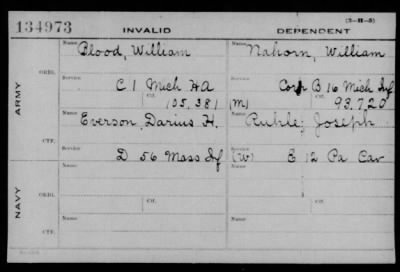 134973 INVALID DEPENDENT (3-H-5)
Name Name
Blood, William Nahorn, William
ARMY
ORIG.
Service Service
C 1 Mich HA Corp B 16 Mich Inf
Ctf. Ctf.
105,381 (M) 93,720
Name Name
Everson, Darius H. Ruhle, Joseph
CTF.
Service Service
D 56 Mass Inf (W) E 12 Pa Cav
NAVY
Name Name
ORIG.
Ctf. Ctf.
Name Name
CTF.